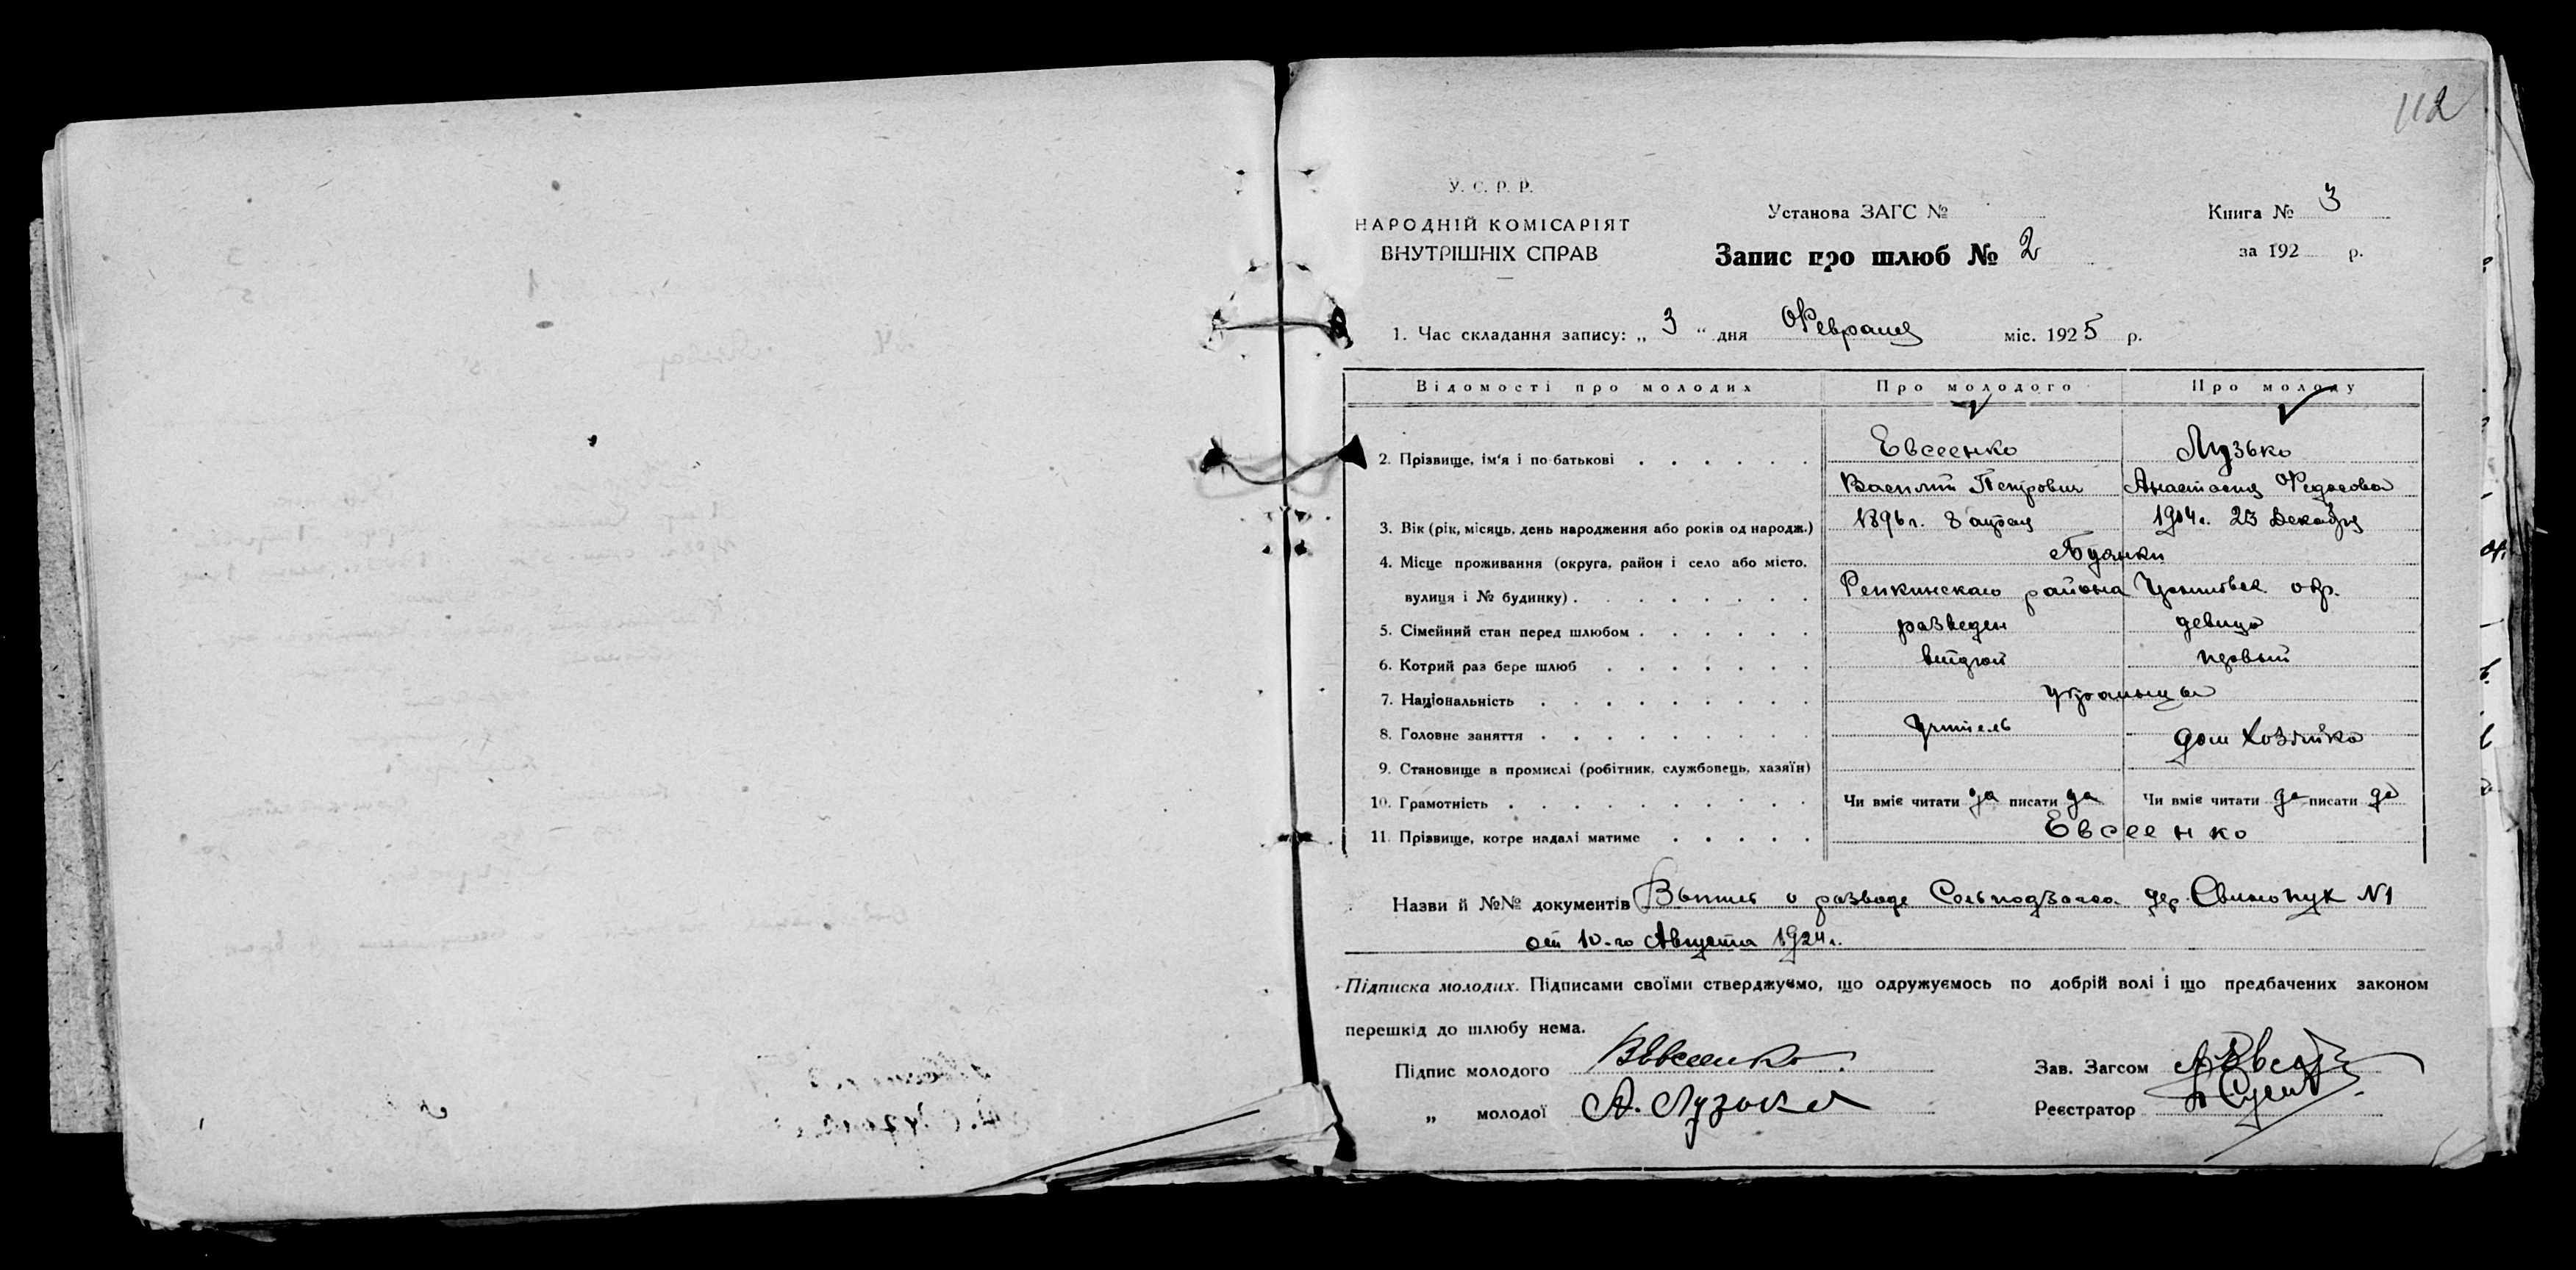 112
У. С. Р. Р.
НАРОДНІЙ КОМІСАРІЯТ
ВНУТРІШНІХ СПРАВ
Установа ЗАГС №
Запис про шлюб № 2
Книга № 3
за 192 р.
1. Час складання запису: „ 3 “ дня Февраля міс. 1925 р.
Відомості про молодих Про молодого Про молоду
2. Прізвище, ім'я і по батькові Евсеенко Лузько
Василий Петрович Анастасия Федосова
3. Вік (рік, місяць, день народження або років од народж.) 1896 г. 8 1904 г. 23 Декабря
4. Місце проживання (округа, район і село або місто,
вулиця і № будинку) Репкинскаго района окр.
5. Сімейний стан перед шлюбом разведен девица
6. Котрий раз бере шлюб второй первый
7. Національність украинцы
8. Головне заняття Учитель дом хозяйка
9. Становище в промислі (робітник, службовець, хазяїн)
10. Грамотність Чи вміє читати да писати да Чи вміє читати да писати да
11. Прізвище, котре надалі матиме Евсеенко
Назви й №№ документів о разводе дер. N1
от 10-го Августа 1924 г.
Підписка молодих. Підписами своїми стверджуємо, що одружуємось по добрій волі і що предбачених законом
перешкід до шлюбу нема.
Підпис молодого ВЕвсеенко
Зав. Загсом
„ молодої А. Лузька
Реєстратор